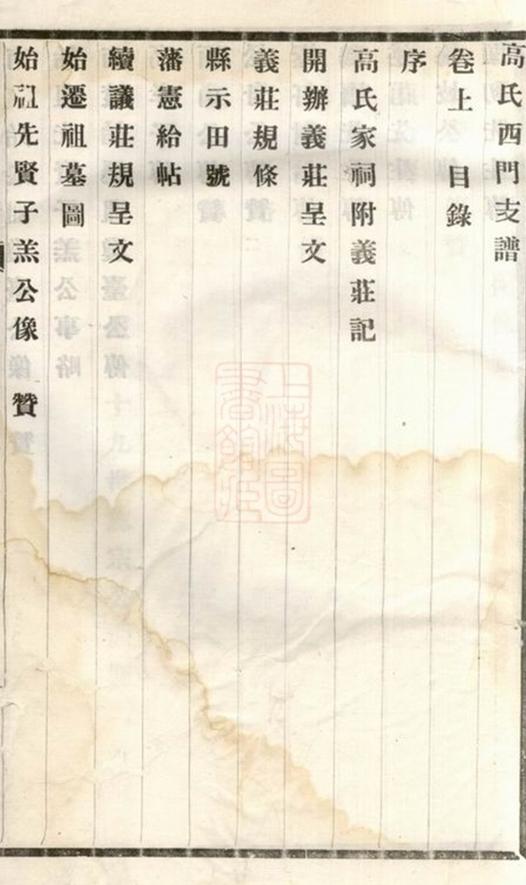 高氏西門支譜
卷上 目錄
序
高氏家祠附義莊記
開辦義莊呈文
義莊規條
縣示田號
藩憲給帖
續議莊規呈文
始遷祖墓圖
始祖先賢子羔公像 贊
上海圖書館藏